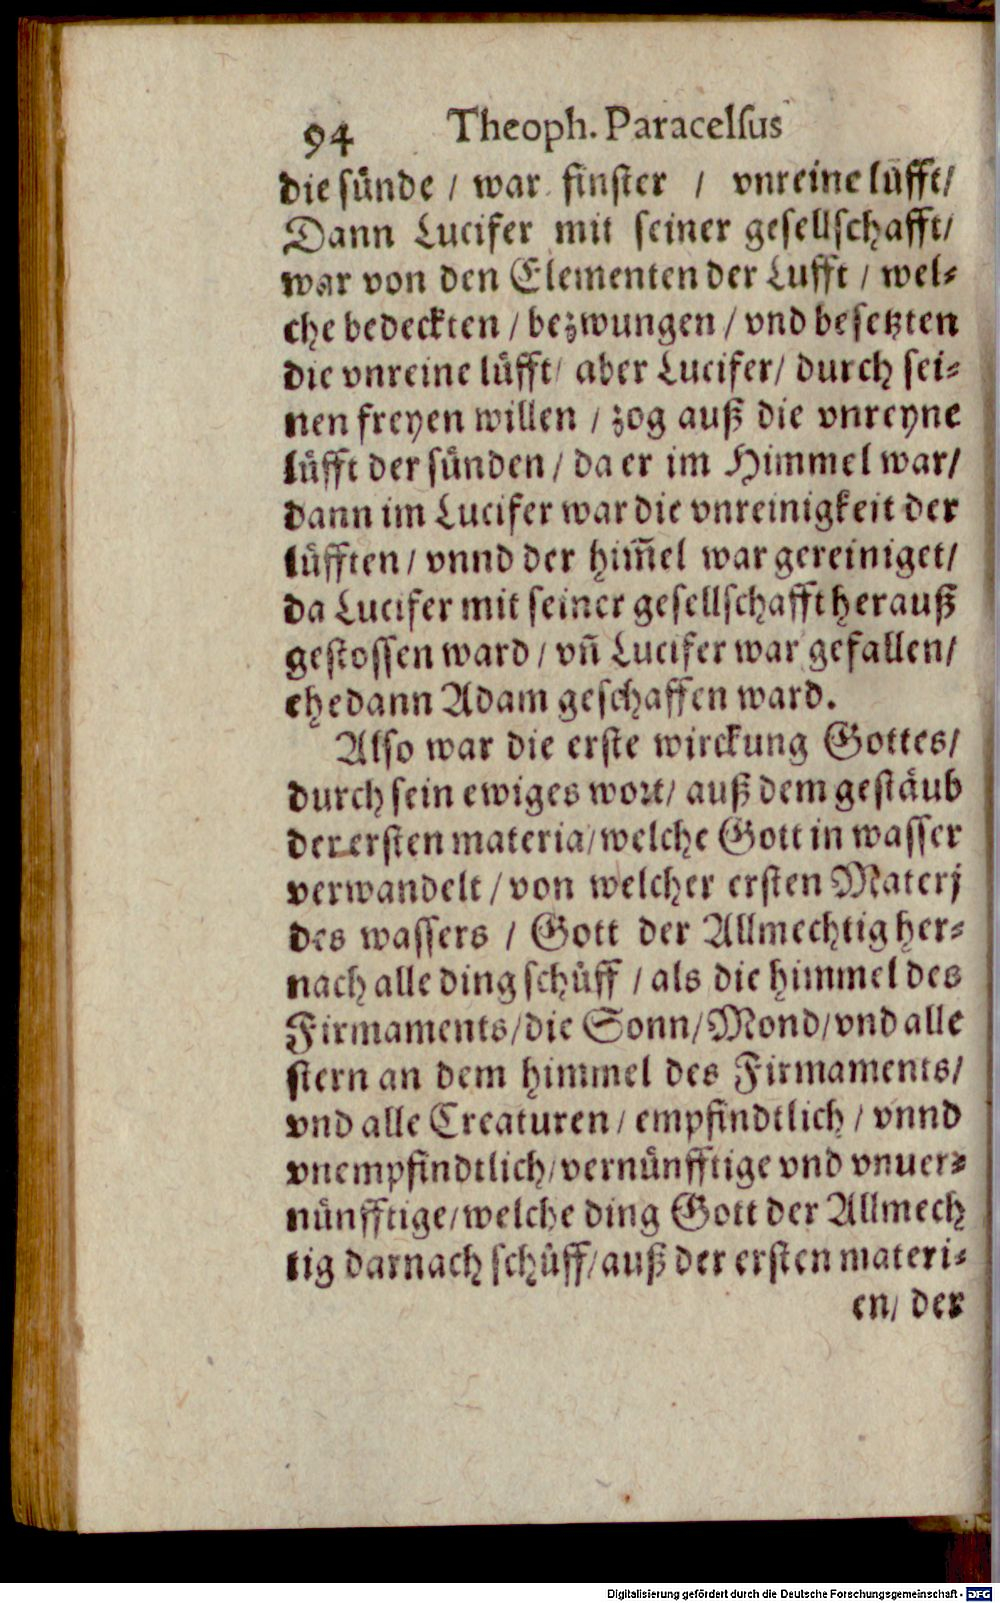 94 Theoph. Paracelſus
die sünde / war finster / vnreine lüfft/
Dann Lucifer mit seiner gesellschafft/
war von den Elementen der Lufft / wel-
che bedeckten / bezwungen / vnd besetzten
die vnreine lüfft/ aber Lucifer/ durch sei-
nen freyen willen / zog auß die vnreyne
lüfft der sünden / da er im Himmel war/
dann im Lucifer war die vnreinigkeit der
lüfften / vnnd der him̃el war gereiniget/
da Lucifer mit seiner gesellschafft herauß
gestossen ward / vñ Lucifer war gefallen/
ehe dann Adam geschaffen ward.
Also war die erste wirckung Gottes/
durch sein ewiges wort/ auß dem gestäub
der ersten materia/ welche Gott in wasser
verwandelt / von welcher ersten Materj
des wassers / Gott der Allmechtig her-
nach alle ding schüff / als die himmel des
Firmaments/die Sonn/Mond/vnd alle
stern an dem himmel des Firmaments/
vnd alle Creaturen / empfindtlich / vnnd
vnempfindtlich/vernünfftige vnd vnuer-
nünfftige/welche ding Gott der Allmech
tig darnach schüff/auß der ersten materi-
en/ der
Digitalisierung gefördert durch die Deutsche Forschungsgemeinschaft - DFG